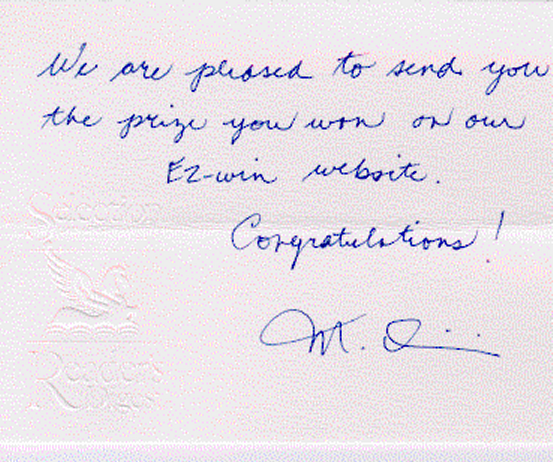 We are pleased to send you
the prize you won on our
EZ-win website.
Congratulations!
M.
Sélection
Reader's
Digest